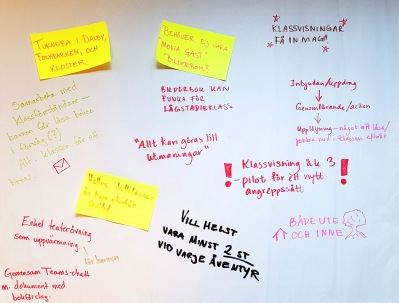 TURNERA I DALBY,
FOLKPARKEN, OCH
KLOSTER
BEHÖVER EJ VARA
MONIA GÄST
BILDERBOK?
KLASSVISNINGAR
FÅ IN MAGI!
Samarbeta med
Klassföreståndare -
barnen får läsa boken
i förväg (?)
Alt. klasser får ett
brev.
BILDERBOK KAN
FUNKA FÖR
LÅGSTADIEKLASS
"Allt kan göras till
utmaningar"
Inbjudan/uppdrag
Genomförande/action
Uppföljning - något att läsa/
jobba med i klassen efteråt
! Klassvisning åk 3 !
- pilot för ett nytt
angreppssätt
Enkel teaterövning
som uppvärmning
för barnen
Gemensam Teams-chatt
m. dokument med
bokförslag.
VILL HELST
VARA MINST 2 ST
VID VARJE ÄVENTYR
BÅDE UTE
OCH INNE